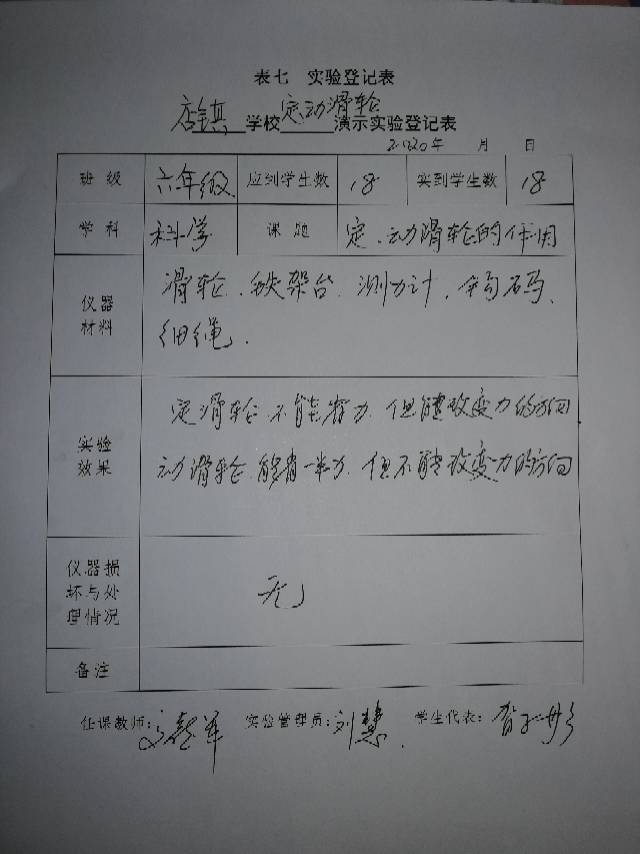 表七 实验登记表
店镇学校定动滑轮演示实验登记表
2020年 月 日
班级 六年级 应到学生数 18 实到学生数 18
学科 科学 课题 定、动滑轮的作用
仪器 滑轮、铁架台、测力计、钩码、
材料 细绳。
实验 定滑轮不能省力,但能改变力的方向.
效果 动滑轮能省一半力,但不能改变力的方向
仪器损
坏与处 无
理情况
备注
任课教师: 实验管理员:刘慧 学生代表: